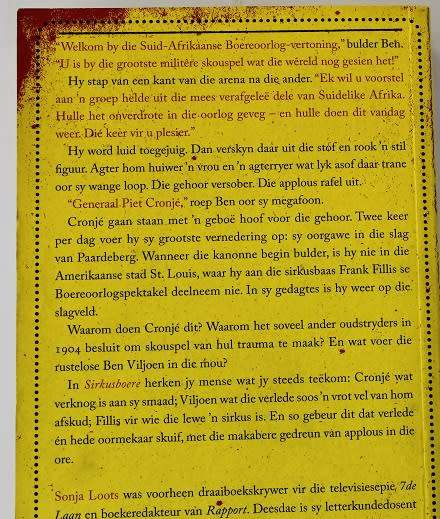 "Welkom by die Suid-Afrikaanse Boereoorlog-vertoning," bulder Beh.
"U is by die grootste militêre skouspel wat die wêreld nog gesien het!"
Hy stap van een kant van die arena na die ander. "Ek wil u voorstel
aan 'n groep helde uit die mees verafgeleë dele van Suidelike Afrika.
Hulle het onverdrote in die oorlog geveg – en hulle doen dit vandag
weer. Dié keer vir u plesier."
Hy word luid toegejuig. Dan verskyn daar uit die stof en rook 'n stil
figuur. Agter hom huiwer 'n vrou en 'n agterryer wat lyk asof daar trane
oor sy wange loop. Die gehoor versober. Die applous rafel uit.
"Generaal Piet Cronjé," roep Ben oor sy megafoon.
Cronjé gaan staan met 'n geboë hoof voor die gehoor. Twee keer
per dag voer hy sy grootste vernedering op: sy oorgawe in die slag
van Paardeberg. Wanneer die kanonne begin bulder, is hy nie in die
Amerikaanse stad St. Louis, waar hy aan die sirkusbaas Frank Fillis se
Boereoorlogspektakel deelneem nie. In sy gedagtes is hy weer op die
slagveld.
Waarom doen Cronjé dit? Waarom het soveel ander oudstryders in
1904 besluit om skouspel van hul trauma te maak? En wat voer die
rustelose Ben Viljoen in die mou?
In Sirkusboere herken jy mense wat jy steeds teëkom: Cronjé wat
verknog is aan sy smaad; Viljoen wat die verlede soos 'n vrot vel van hom
afskud; Fillis vir wie die lewe 'n sirkus is. En so gebeur dit dat verlede
én hede oormekaar skuif, met die makabere gedreun van applous in die
ore.
Sonja Loots was voorheen draaiboekskrywer vir die televisiesepie 7de
Laan en boekeredakteur van Rapport. Deesdae is sy letterkundedosent